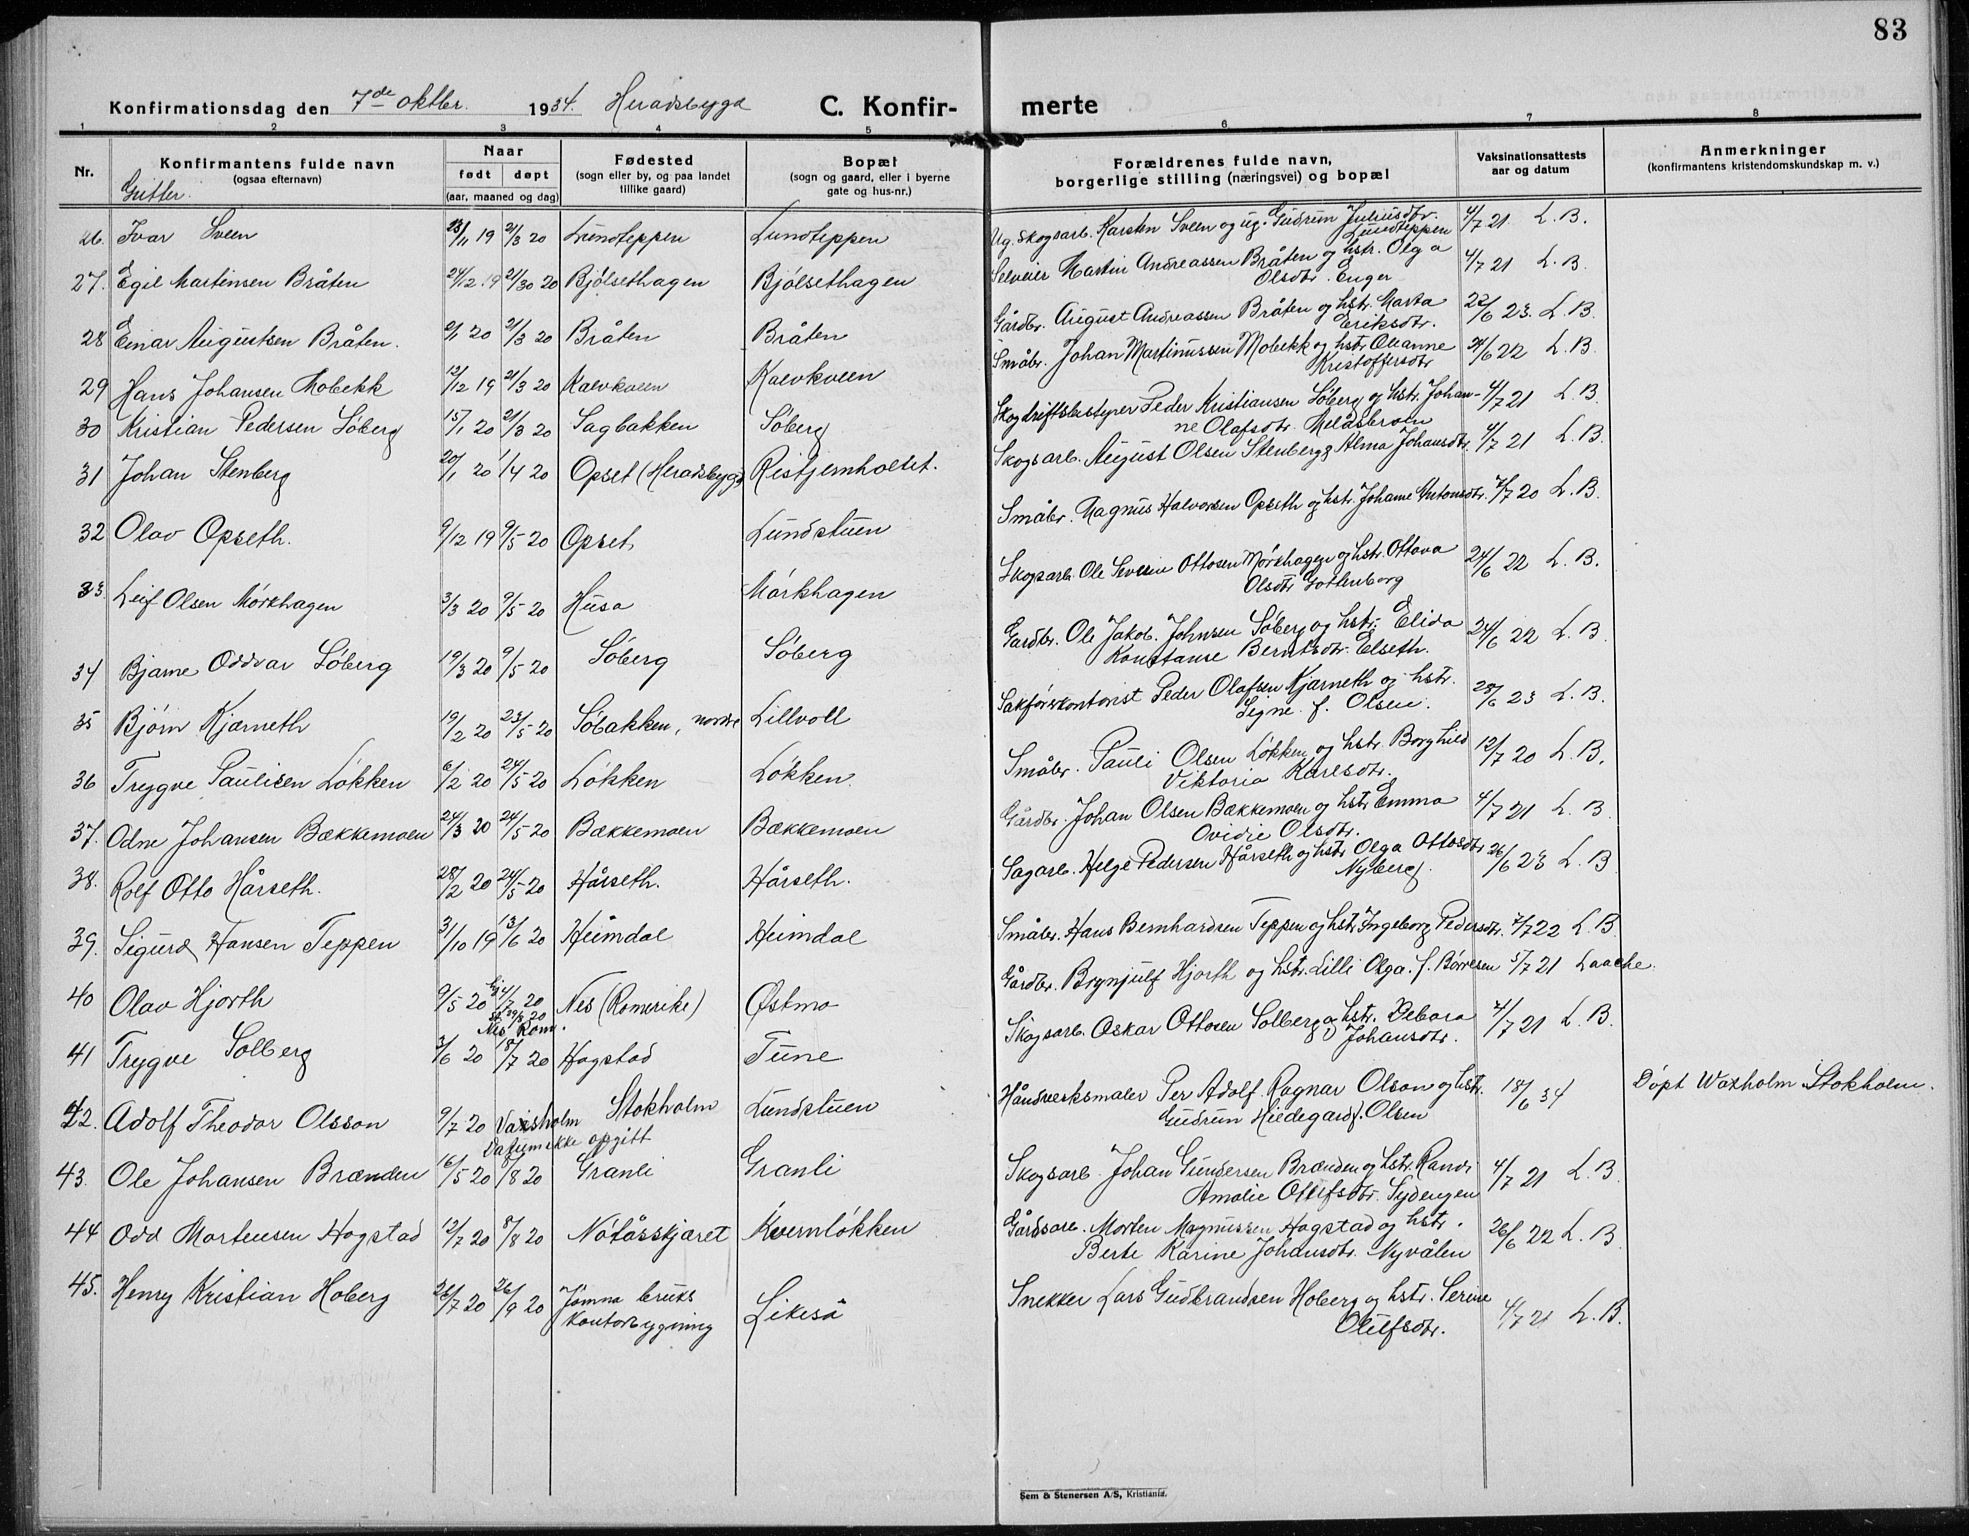 83
Konfirmationsdag den 7de oktbr. 1934. Heradsbygd C. Konfir- merte
1 2 3 4 5 6 7 8
Nr. Konfirmantens fulde navn (ogsaa efternavn) Naar født døpt (aar, maaned og dag) Fødested (sogn eller by, og paa landet tillike gaard) Bopæl (sogn og gaard, eller i byerne gate og hus-nr.) Forældrenes fulde navn, borgerlige stilling (næringsvei) og bopæl Vaksinationsattests aar og datum Anmerkninger (konfirmantens kristendomskundskap m. v.)
Gutter.
26. Ivar Sveen 23/11 19 21/3 20 Lundteppen Lundteppen Ug. Skogsarb. Karsten Sveen og ug. Gudrun Juliusdtr. Lundteppen 4/7 21 L. B.
27. Egil Martinsen Bråten 24/12 19 21/30 20 Bjølsethagen Bjølsethagen Selveier Martin Andreassen Bråten og hstr. Olga
Olsdtr. Enger 4/7 21 L. B.
28 Einar Augustsen Bråten. 2/1 20 21/3 20 Bråten Bråten Gårdbr. August Andreassen Bråten og hstr. Marta
Eriksdtr. 22/6 23. L. B.
29 Hans Johansen Mobekk 12/12 19 21/3 20 Kalvkveen Kalvkveen Småbr. Johan Martinussen Mobekk og hstr. Oleanne
Kristoffersdtr 24/6 22 L. B.
30 Kristian Pedersen Søberg 15/1 20 21/3 20 Sagbakken Søberg Skogdriftsbestyrer Peder Kristiansen Søberg og hstr. Johan-
ne Olafsdtr. Melåsbroen 4/7 21 L. B.
31 Johan Stenberg 20/1 20 1/4 20 Opset (Heradsbygd) Ristjernholtet. Skogsarb. August Olsen Stenberg og Alma Johansdtr. 4/7 21 L. B.
32 Olav Opseth. 9/12 19 9/5 20 Opset Lundstuen Småbr. Magnus Halvorsen Opseth og hstr. Johanne Antonsdtr. 7/7 20 L. B.
33. Leif Olsen Mörkhagen 3/3 20 9/5 20 Husa Mörkhagen Skogsarb. Ole Severin Ottosen Mörkhagen og hstr. Ottova
Olsdtr Gottenborg 24/6 22 L. B.
34 Bjarne Oddvar Søberg 19/3 20 9/5 20 Søberg Søberg Gårdbr. Ole Jakob. Johnsen Søberg og hstr. Elida
Konstanse Berntsdtr. Elseth. 24/6 22 L. B.
35 Bjørn Kjærneth 19/2 20 23/5 20 Søbakken, nordre Lillvoll Sakførerkontorist Peder Olafsen Kjærneth og hstr.
Signe f. Olsen. 28/6 23 L. B.
36 Trygve Paulisen Løkken 6/2 20 24/5 20 Løkken Løkken. Småbr. Pauli Olsen Løkken og hstr Borghild
Viktoria Karlsdtr. 12/7 20 L. B.
37. Odne Johansen Bækkemoen 24/3 20 24/5 20 Bækkemoen Bækkemoen Gårdbr. Johan Olsen Bækkemoen og hstr Emma
Ovidie Olsdtr. 4/7 21 L. B.
38. Rolf Otto Hårseth. 28/2 20 24/5 20 Hårseth. Hårseth. Sagarb. Helge Pedersen Hårseth og hstr Olga Ottosdtr
Nyberg. 26/6 23 L. B.
39. Sigurd Hansen Teppen 31/10 19 13/6 20 Heimdal Heimdal Småbr. Hans Bernhardsen Teppen og hstr Ingeborg Pedersdtr. 7/7 22 L. B.
40 Olav Hjorth 9/5 20 4/7 20 29/8 20
Nes Rom. Nes (Romerike) Østmo Gårdbr. Brynjulf Hjorth og hstr. Lilli Olga. f. Børresen 5/7 21 Laache.
41 Trygve Solberg 3/6 20 18/7 20 Hagstad Tune Skogsarb. Oskar Ottosen Solberg og hstr. Debora
Johansdtr. 4/7 21 L. B.
42. Adolf Theodor Olsson 9/7 20 Vaxsholm Stokholm
Datum ikke opgitt Lundstuen Håndverksmaler Per Adolf Ragnar Olson og hstr.
Gudrun Hildegard f. Olsen 18/6 34 Døpt Waxholm Stokholm.
43. Ole Johansen Brænden 16/5 20 8/8 20 Granli Granli Skogsarb. Johan Gundersen Brænden og hstr. Randi
Amalie Olufsdtr. Sydengen 4/7 21 L. B.
44 Odd Mortensen Hagstad 12/7 20 8/8 20 Nøtåsskjæret Kvernløkken Gårdsarb. Morten Magnussen Hagstad og hstr.
Berte Karine Johansdtr. Nyvålen 26/6 22 L. B.
45. Henry Kristian Hoberg 26/7 20 26/9 20 Jømna bruks
kontorbygning Likeså Snekker Lars Gudbrandsen Hoberg og hstr. Serine
Olufsdtr. 4/7 21 L. B.
Sem & Stenersen A/S, Kristiania.